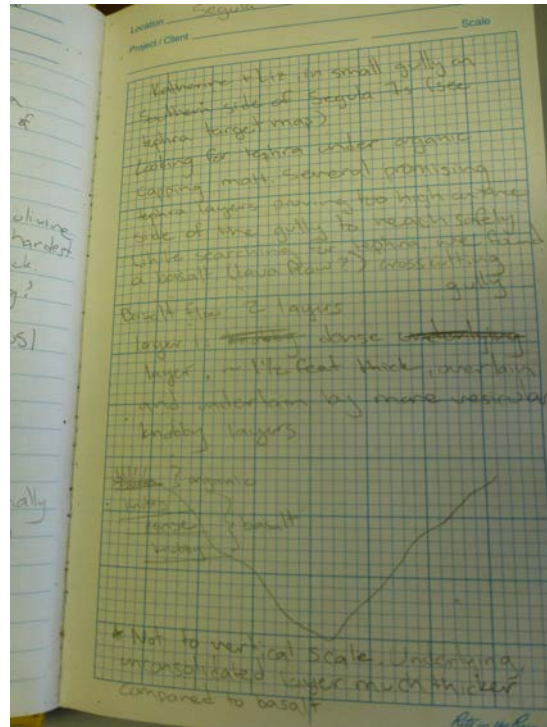 Location Segula
Project / Client
Scale
Katherine + Liz in small gully on
Southern side of Segula Is (see
tephra target map)
Looking for tephra under organic
capping matt. Several promising
tephra layers proving too high on the
side of the gully to reach safely
while searching tephra we found
a basalt (lava flow?) crosscutting
gully
Basalt flow 2 layers
layer 1. dense
layer, ~ 1 1/2 feet thick, overlain
and underlain by more vesicular
knobby layers
? organic
knobby
dense } basalt
knobby
* Not to vertical scale. Underlying,
unconsolidated layer much thicker
compared to basalt
Rite in the Rain
olivine
hardest
ck.
g?
us)
ally
of